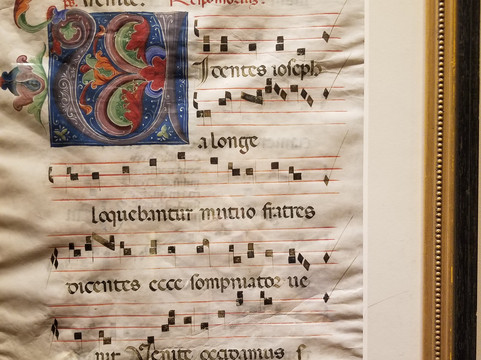 Venite. Responsorius.
VIdentes ioseph
a longe
loquebantur mutuo fratres
dicentes ecce sompniator ue
nit Venite occidamus